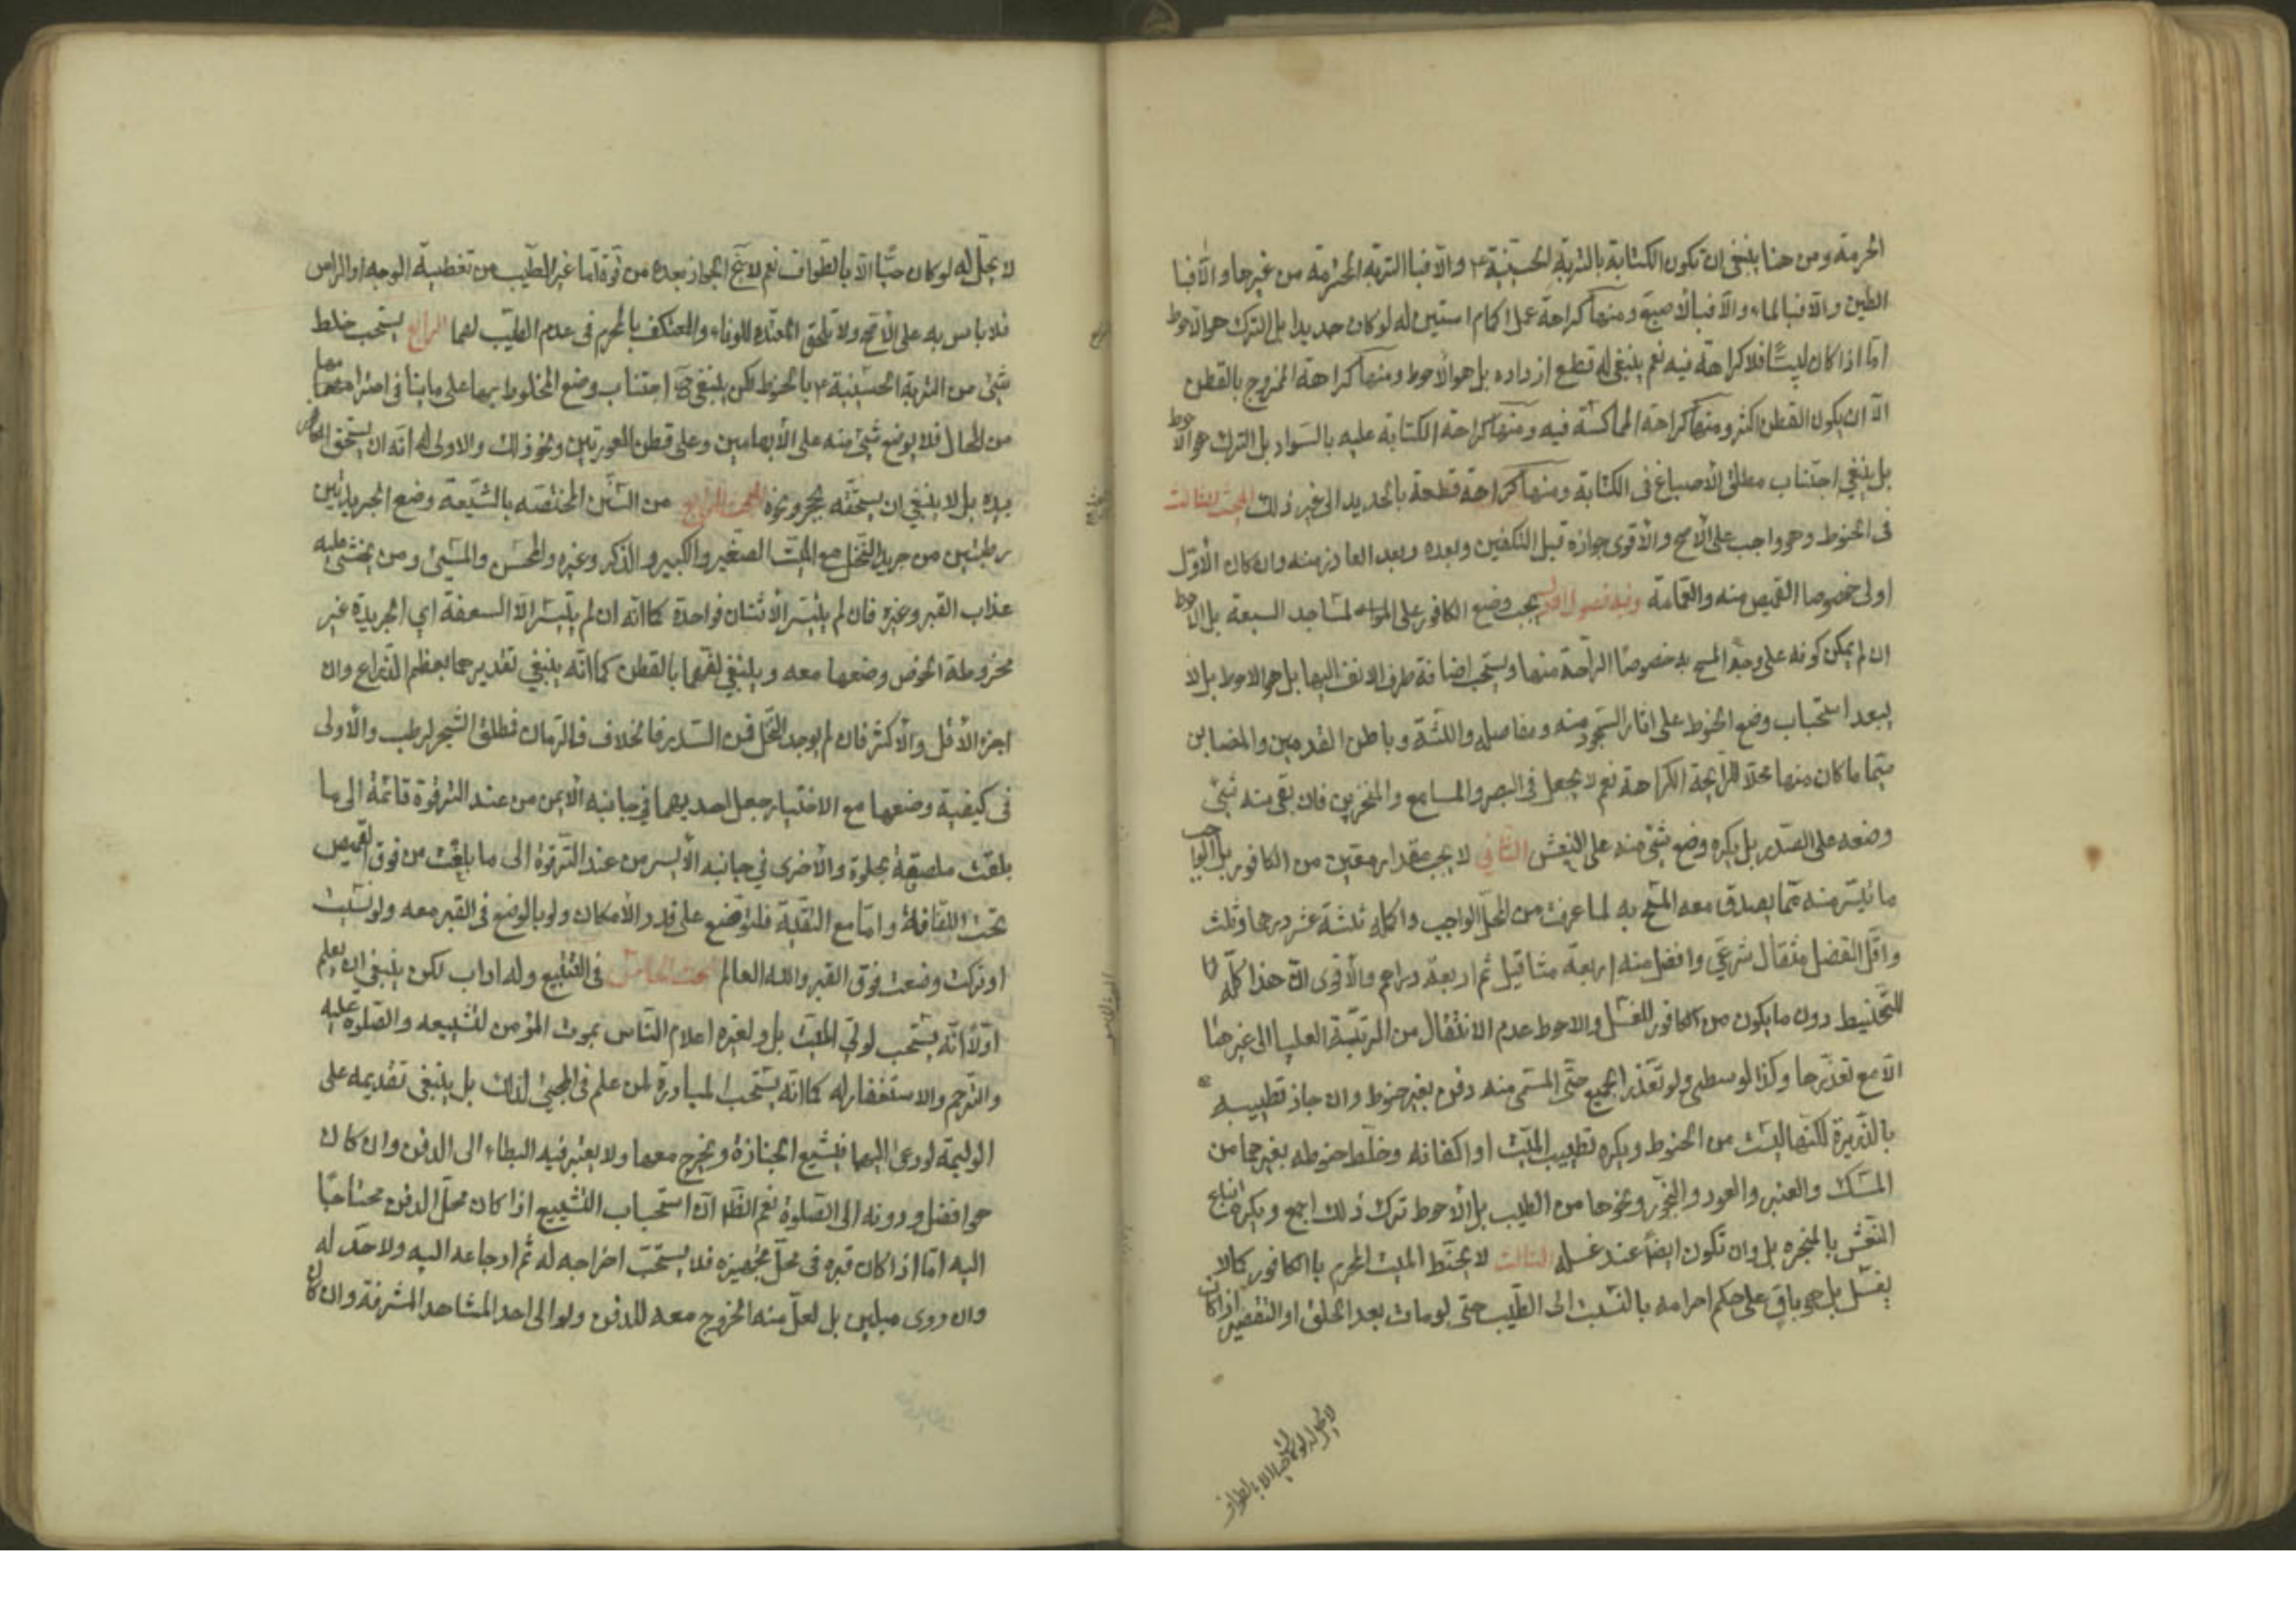 الحرمة ومن هنا ينبغي ان تكون الكتابة بالتربة الحسينية ع والا فبا التربة المحترمة من غيرها والا فبا
الطين والا فبالماء والا فبالاصبع ومنها كراهة عمل اكمام استين له لو كان جديدا بل الترك هو الاحوط
اما اذا كان لبيسًا فلا كراهة فيه نعم ينبغي له قطع ازراره بل هو الأحوط ومنها كراهة الممزوج بالقطن
الا ان يكون القطن اكثر ومنها كراهة المماكسة فيه ومنها كراهة الكتابة عليه بالسواد بل الترك هو الاحوط
بل ينبغي اجتناب مطلق الأصباغ في الكتابة ومنها كراهة قطعة بالحديد الى غير ذلك المبحث الثالث
في الحنوط وهو واجب على الأصح والأقوى جوازه قبل التكفين وبعده وبعد المازر منه وان كان الأول
اولى خصوصا القميص منه والعمامة وفيه فصول الاول يجب وضع الكافور على المساجد السبعة بل الاحوط
ان لم يمكن كونه على وجه المسح به خصوصًا الراحة منها ويستحب اضافة طرف الانف اليها بل هو الاحوط بل لا
يبعد استحباب وضع الحنوط على اثار السجود منه ومفاصله واللثة وباطن القدمين والمغابن
سيما ما كان منها محلا للرايحة الكراهة نعم لا يجعل في البصر والمسامع والمنخرين فان بقي منه شيئ
وضعه على الصدر بل يكره وضع شيئ منه على النعش الثاني لا يجب مقدار معين من الكافور بل الواجب
ما تيسر منه مما يصدق معه المسح به لما عرفت من المحل الواجب واكمله ثلثة عشر درهما وثلث
واقل الفضل مثقال شرعي وافضل منه اربعة مثاقيل ثم اربعة دراهم والأقوى ان هذا كله
للتحنيط دون ما يكون من الكافور للغسل والاحوط عدم الانتقال من المرتبة العليا الى غيرها
الا مع تعذرها وكذا الوسطى ولو تعذر الجميع حتى المسمى منه دفن بغير حنوط وان جاز تطييبه
بالذريرة لكنها ليست من الحنوط ويكره تطييب الميت او اكفانه وخلط حنوطه بغيرها من
المسك والعنبر والعود والبخور ونحوها من الطيب بل الأحوط ترك ذلك اجمع ويكره اتباع
النعش بالمجمره بل وان تكون ايضاً عند غسله الثالث لا يحنط الميت المحرم با الكافور كما لا
يغسل بل هو باق على حكم احرامه بالنسبت الى الطيب حتى لو مات بعد الحلق او التقصير اذا كان
لا يحل له لو كان حيا الا بالطواف
لا يحل له لو كان حيًّا الا بالطواف نعم لا يخ الجواز بعده من قوة اما غير الطيب من تغطية الوجه او الراس
فلا باس به على الاصح ولا تلحق المعتده للوفاء والمعتكف بالمحرم في عدم الطيب لهما الرابع يستحب خلط
شئ من التربة الحسينية ع بالحنوط لكن ينبغي ح اجتناب وضع المخلوط بها على ما ينافي احترامها
من المحال فلا يوضع شئ منه على الأبهامين وعلى قطن العورتين ونحو ذلك والاولى له انه ان يسحق الكافور
بيده بل لا ينبغي ان يسحقه بحجر ونحوه المبحث الرابع من السنن المختصه بالشيعة وضع الجريدتين
رطبتين من جريد النخل مع الميت الصغير والكبير والذكر وغيره والمحسن والمسيئ ومن يخشى عليه
عذاب القبر وغيره فان لم يتيسر الأثنتان فواحدة كما انه ان لم يتيسر الا السعفة اي الجريدة غير
مخروطة الخوص وضعها معه وينبغي لفها بالقطن كما انه ينبغي تقديرها بعظم الذراع وان
اجزء الأقل والأكثر فان لم يوجد النخل فمن السدر فالخلاف فالرمان فمطلق الشجر الرطب والأولى
في كيفية وضعها مع الاختيار جعل احديهما في جانبه الأيمن من عند الترقوة قائمة الى ما
بلغت ملصقة بجلده والأخرى في جانبه الأيسر من عند الترقوة الى ما بلغت من فوق القميص
تحت اللفافة واما مع التقية فلتوضع على قدر الأمكان ولو بالوضع في القبر معه ولو نسيت
او تركت وضعت فوق القبر والله العالم المبحث الخامس في التشييع وله اداب لكن ينبغي ان يعلم
اولاً انه يستحب لولي الميت بل ولغيره اعلام الناس بموت المؤمن لتشييعه والصلوة عليه
والترحم والاستغفار له كما انه يستحب المبادرة لمن علم في المجيئ لذلك بل ينبغي تقديمه على
الوليمة لو دعى اليهما فيشيع الجنازة ويخرج معها ولا يعتبر فيه البطاء الى الدفن وان كان
هو افضل ودونه الى الصلوة نعم الظ ان استحباب التشييع اذا كان محل الدفن محتاجًا
اليه اما اذا كان قبره في محل تجهيزه فلا يستحب اخراجه له ثم ارجاعه اليه ولا حد له
وان روى ميلين بل لعل منه الخروج معه للدفن ولو الى احد المشاهد المشرفة وان كان